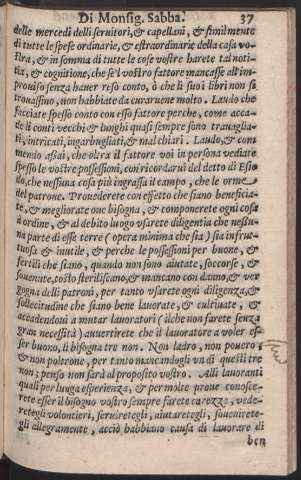 Di Monsig. Sabba. 37
delle mercedi delli seruitori, & capellani, & similmente
di tutte le spese ordinarie, & estraordinarie della casa vo-
stra, & in somma di tutte le cose vostre harete tal noti-
tia, & cognitione, che se'l vostro fattore mancasse all'im-
prouiso senza hauer reso conto, ò che li suoi libri non si
trouassino, non habbiate da curaruene molto. Laudo che
facciate spesso conto con esso fattore perche, come acca-
de li conti vecchi & lunghi quasi sempre sono trauaglia-
ti, intricati, ingarbugliati, & mal chiari. Laudo, & com
mendo assai, che oltra il fattore voi in persona vediate
spesso le vostre possessioni, con ricordarui del detto di Esio
do, che nessuna cosa più ingrassa il campo, che le orme
del patrone. Prouederete con effetto che siano beneficia-
te, & megliorate oue bisogna, & componerete ogni cosa
à ordine, & al debito luogo vsarete diligentia che nessu-
na parte di esse terre (opera minima che sia) sia infrut-
tuosa & inutile, & perche le possessioni per buone, &
fertili che siano, quando non sono aiutate, soccorse, &
souenute, tosto steriliscano, & mancano con danno, & ver
gogna delli patroni, per tanto vsarete ogni diligenza, &
sollecitudine che siano bene lauorate, & cultiuate, &
accadendoui a mutar lauoratori (ilche non farete senza
gran necessità) auuertirete che il lauoratore a voler es-
ser buono, li bisogna tre non. Non ladro, non pouero,
& non poltrone, per tanto mancandogli vn di questi tre
non; penso non sarà al proposito vostro. Alli lauoranti
quali per lunga esperienza, & per molte proue conosce-
rete esser il bisogno vostro sempre farete carezze, vede-
retegli volontieri, seruiretegli, aiutaretegli, souenirete-
gli allegramente, acciò habbiano causa di lauorare di
ben